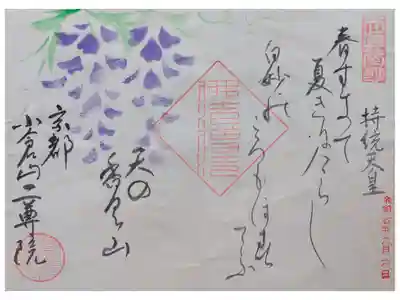 持統天皇
春すきて
夏きにけらし
白妙の
ころもほすてふ
天の
香具山
京都
小倉山二尊院